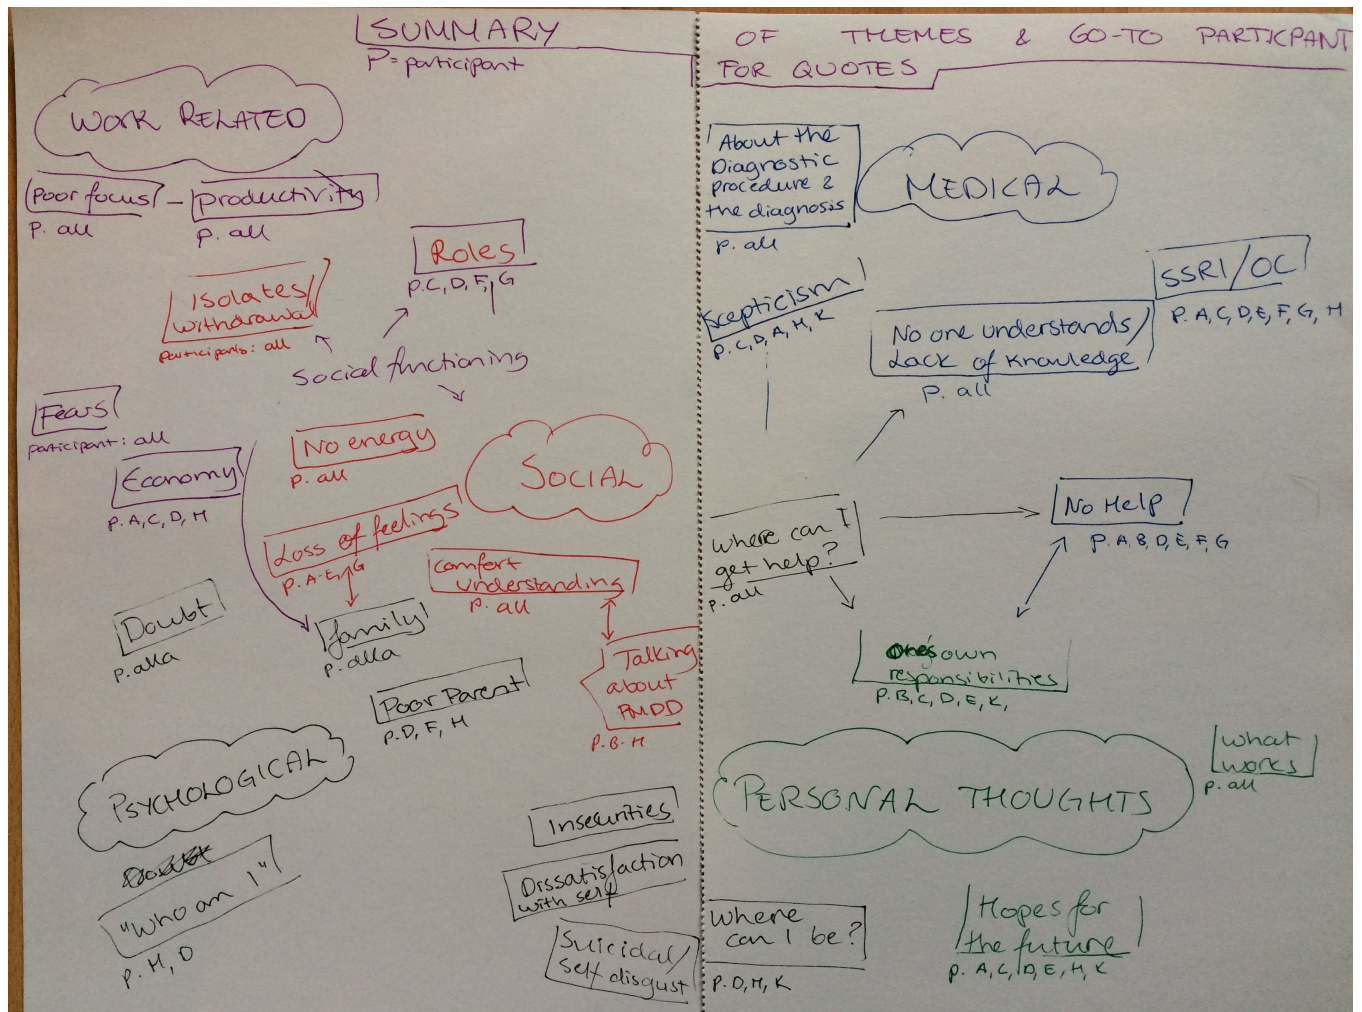 SUMMARY
P = participant
WORK RELATED
Poor focus - productivity
P. all
P. all
Roles
P. C, D, F, G
Isolates/
withdrawal
participants: all
Social functioning
Fears
participant: all
Economy
P. A, C, D, H
No energy
P. all
SOCIAL
Loss of feelings
P. A-E, G
comfort
understanding
P. all
Doubt
P. alla
family
P. alla
Talking
about
PMDD
P. B-H
Poor Parent
P. D, F, H
PSYCHOLOGICAL
"Who am I"
P. H, D
Insecurities
Dissatisfaction
with self
Suicidal/
self disgust
OF THEMES & GO-TO PARTICPANT
FOR QUOTES
About the
Diagnostic
procedure &
the diagnosis
P. all
MEDICAL
SSRI/OC
P. A, C, D, E, F, G, H
Scepticism
P. C, D, A, H, K
No one understands/
Lack of knowledge
P. all
Where can I
get help?
P. all
No Help
P. A, B, D, E, F, G
One's own
responsibilities
P. B, C, D, E, K,
PERSONAL THOUGHTS
What
works
P. all
Where
can I be?
P. D, H, K
Hopes for
the future
P. A, C, D, E, H, K